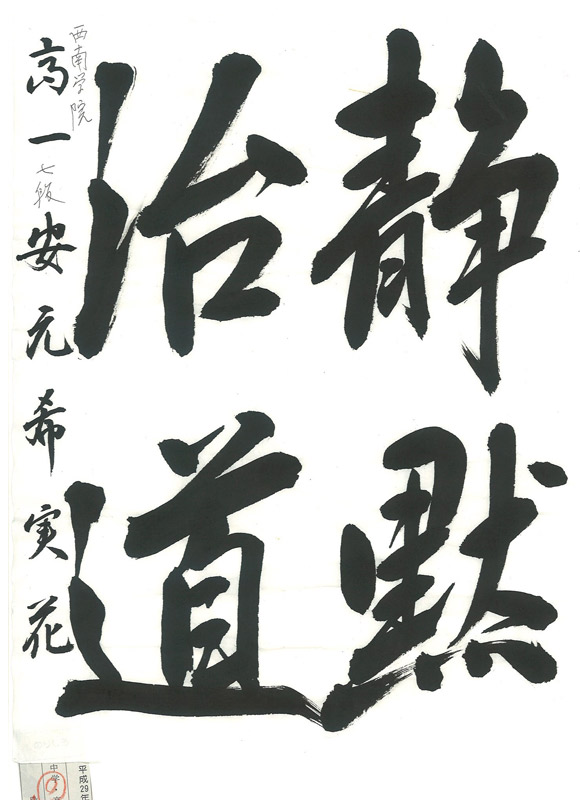 静黙
治道
西南学院
高一 七段 安元希実花
平成29年
中学